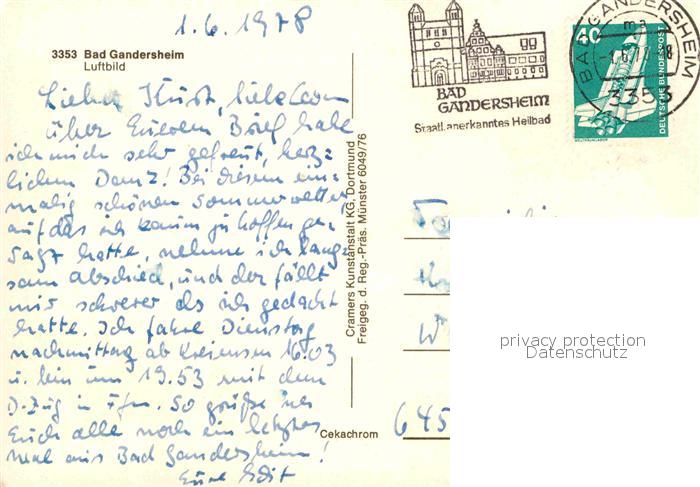 1.6.1978
3353 Bad Gandersheim
Luftbild
Lieber Kurt, liebe
über Eueren Brief habe
ich mich sehr gefreut, herz-
lichen Dank! Bei diesem ein-
malig schönen Sommerwetter
auf das ich kaum zu hoffen ge-
wagt hatte, nehme ich lang-
sam abschied, und der fällt
mir schwerer als ich gedacht
hatte. Ich fahre Dienstag
nachmittag ab Kreiensen 16.03
u. bin um 19.53 mit dem
D-Zug in Ffm. So grüße ich
Euch alle noch ein letztes
mal aus Bad Gandersheim!
Eure Edit
Cramers Kunstanstalt KG, Dortmund
Freigeg. d. Reg.-Präs. Münster 6049/76
Cekachrom
BAD
GANDERSHEIM
Staatl. anerkanntes Heilbad
BAD GANDERSHEIM
ma
3353
40
DEUTSCHE BUNDESPOST
WELTRAUMLABOR
645
privacy protection
Datenschutz